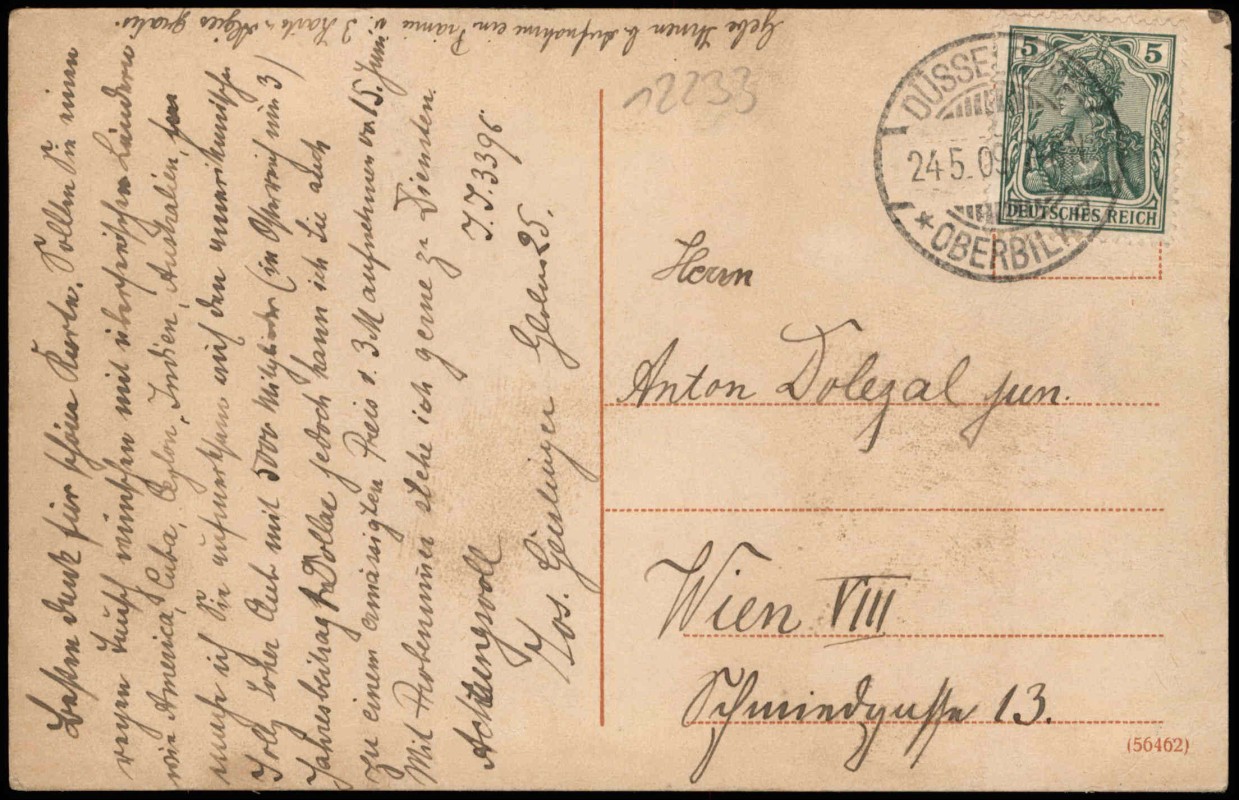 Besten Dank für schöne Karte. Sollten Sie einen
regen Tausch wünschen mit überseeischen Ländern
wie America, Cuba, Ceylon, Indien, Australien,
mache ich Sie aufmerksam auf den amerikanischen
Jolly Joker Club mit 5000 Mitglieder (in Österreich nur 3)
Jahresbeitrag 1 Dollar jedoch kann ich Sie auch
zu einem ermässigten Preis v. 3 M aufnehmen vor 15. Juni
Mit Probenummer stehe ich gerne zu Diensten.
Achtungsvoll J.J. 3396
Jos. Geilinger 25.
Gebe Ihnen b. Aufnahme ein Prämie v. 3 Karto-Algies gratis.
12233
DÜSSE
24.5.09
* OBERBILK
5 5
DEUTSCHES REICH
Herrn
Anton Dolezal jun.
Wien VIII
Schmiedgasse 13.
(56462)